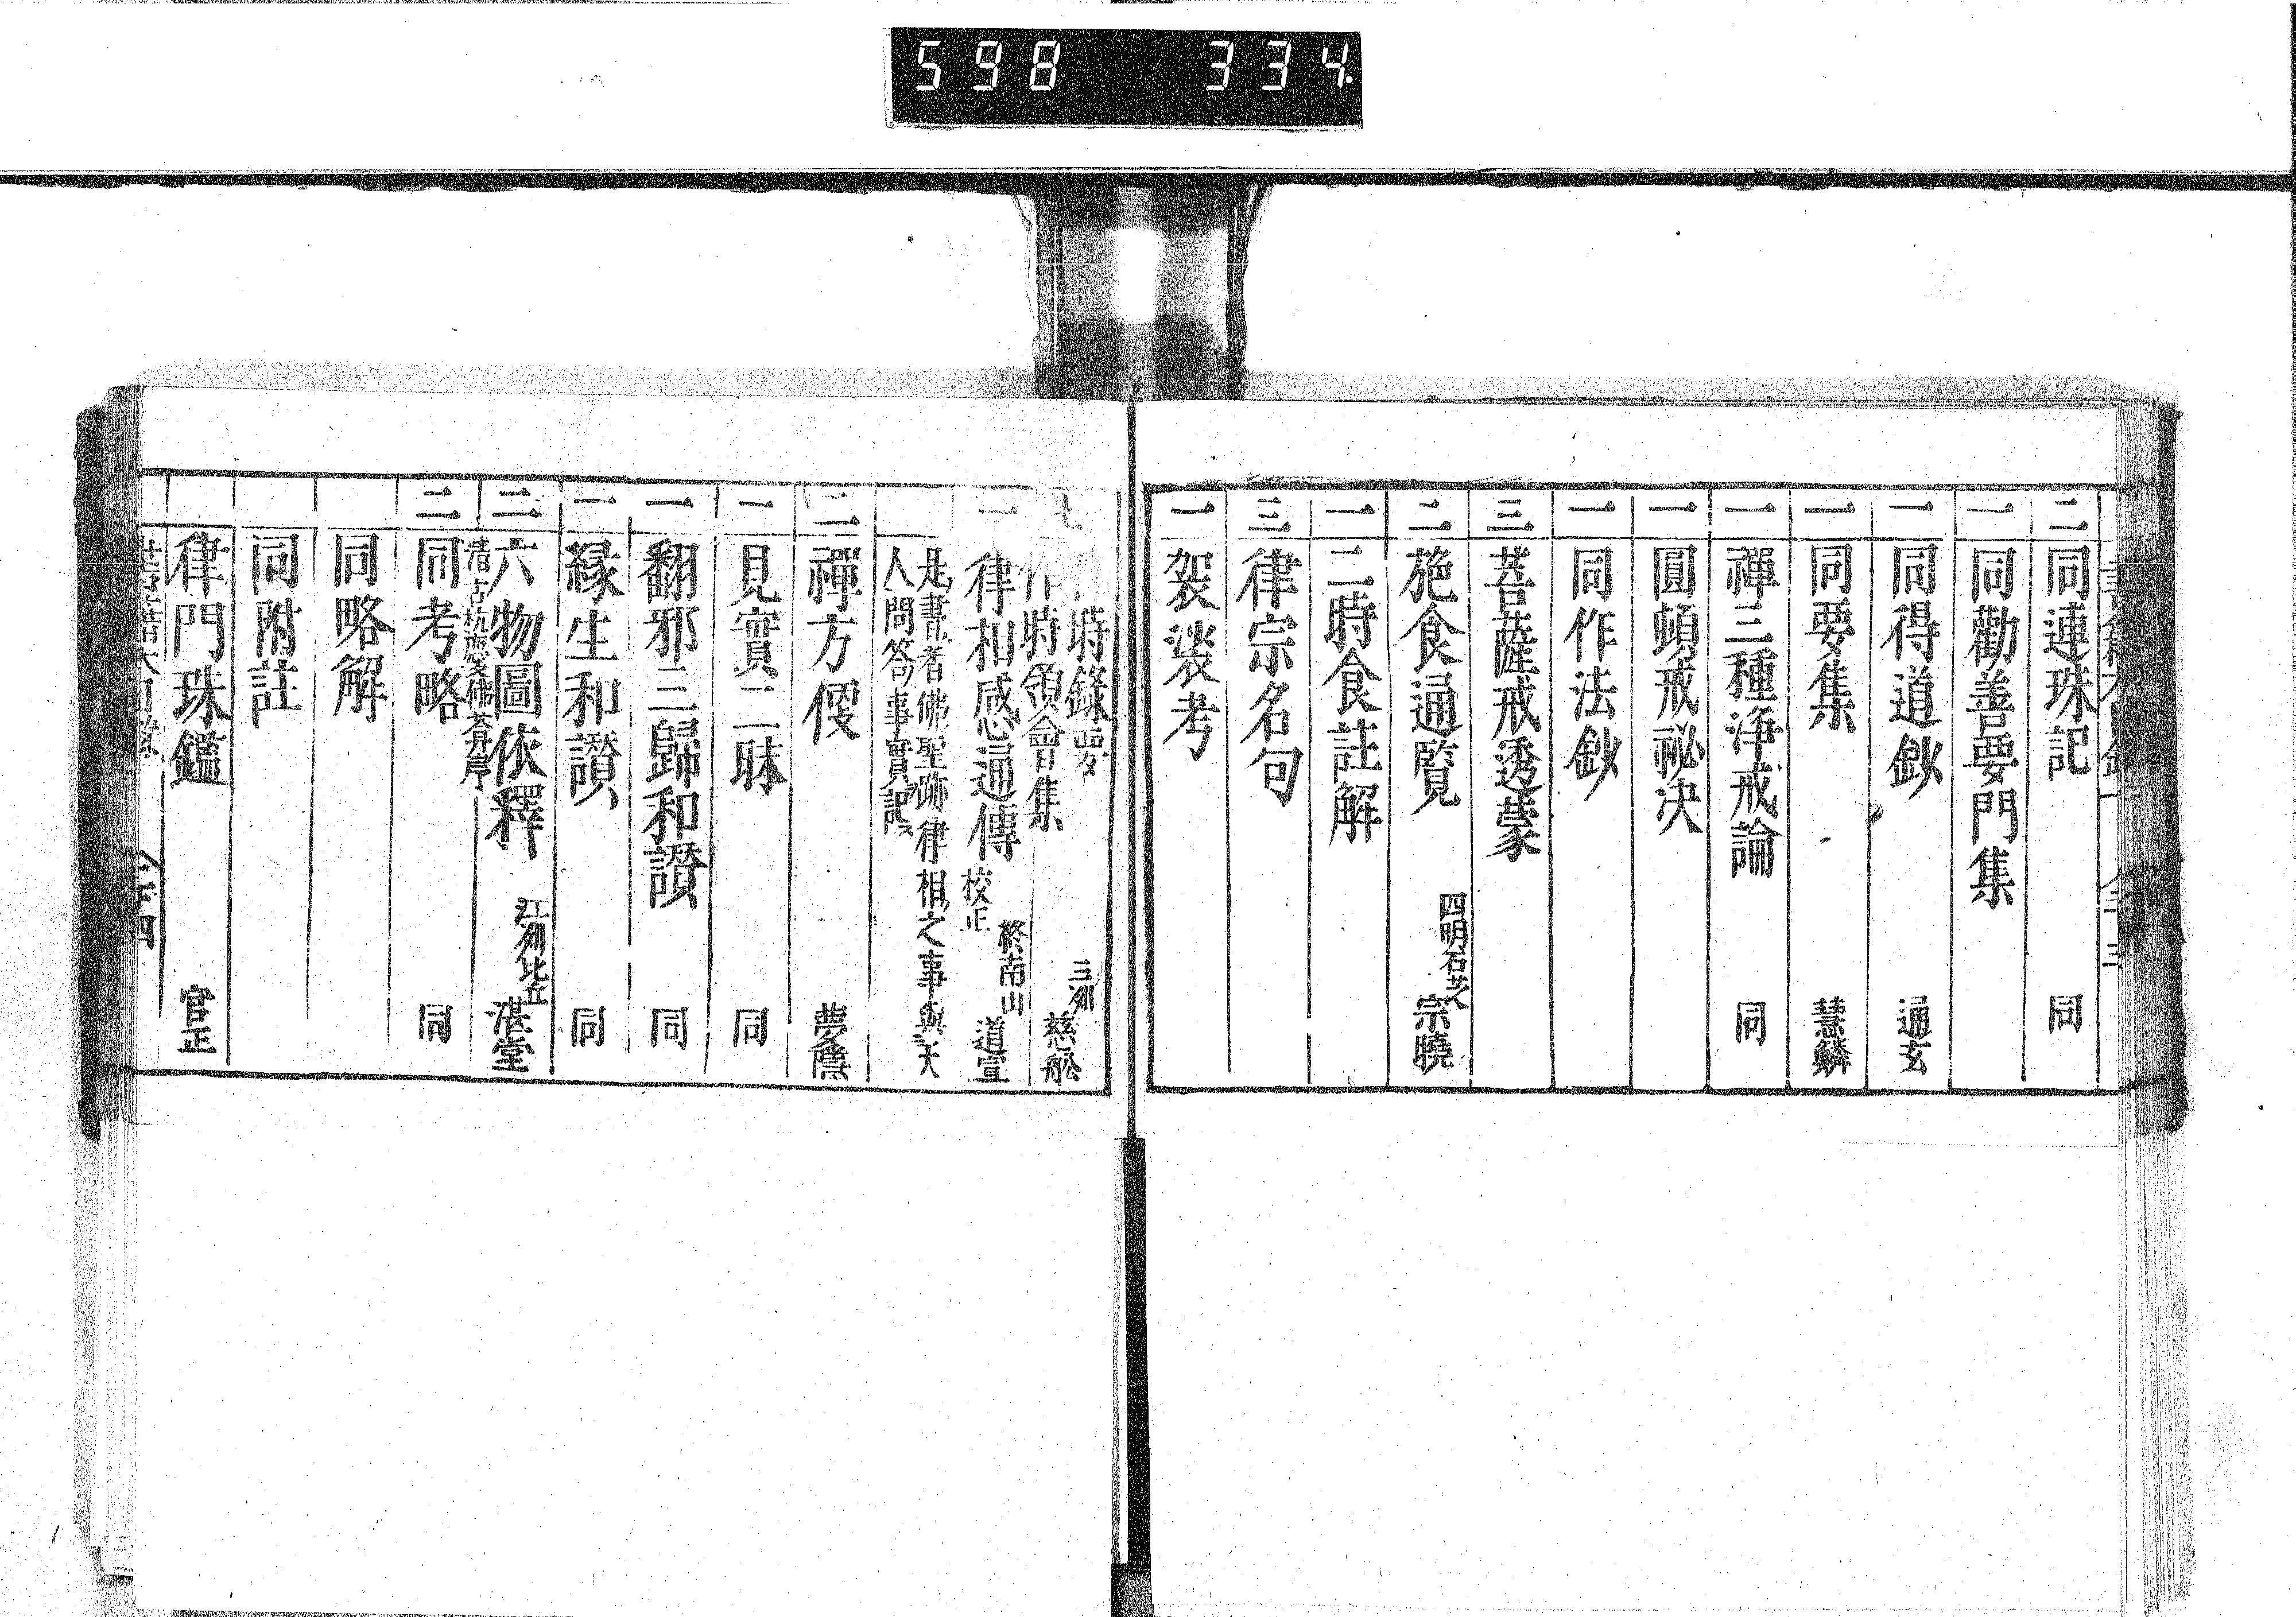 598 334
二 同連珠記 同
一 同勸善要門集
一 同得道鈔 通玄
一 同要集 慧鱗
一 禪三種淨戒論 同
一 圓頓戒祕決
一 同作法鈔
三 菩薩戒透蒙
二 施食通覽 四明石芝 宗曉
一 二時食註解
三 律宗名句
一 袈裟考
時錄夢
時領會集 三刕 慈舩
一 律相感通傳 校正 終南山 道宣
是書者佛聖跡律相之事與天
人問答事實記
二 禪方便 夢隱
一 見實二昧 同
一 翻邪三歸和讚 同
一 緣生和讚 同
二 六物圖依釋 江刕比丘 湛堂
二 同考略 同
同略解
同附註
律門珠鑑 官正